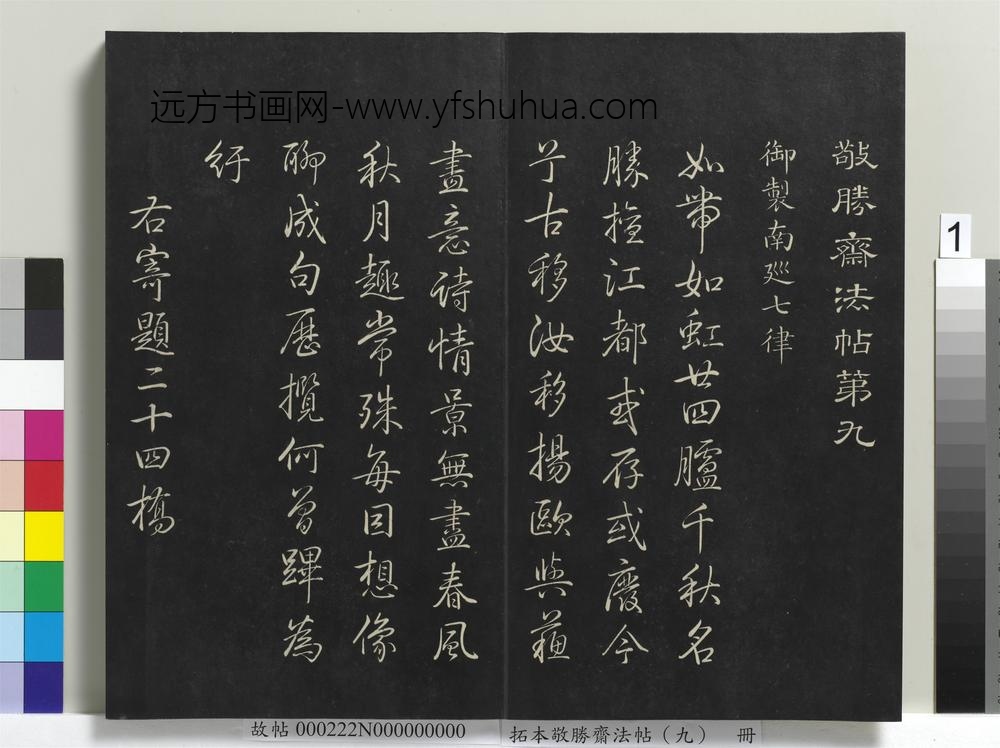 远方书画网-www.yfshuhua.com
敬勝齋法帖第九
御製南廵七律
如帶如虹廿四臚千秋名
勝擅江都或存或廢今
兮古移汝移揚歐與蘓
畫意詩情景無盡春風
秋月趣常殊每因想像
聊成句歷攬何曾蹕為
紆
右寄題二十四橋
1
故帖 000222N000000000
拓本敬勝齋法帖（九） 冊